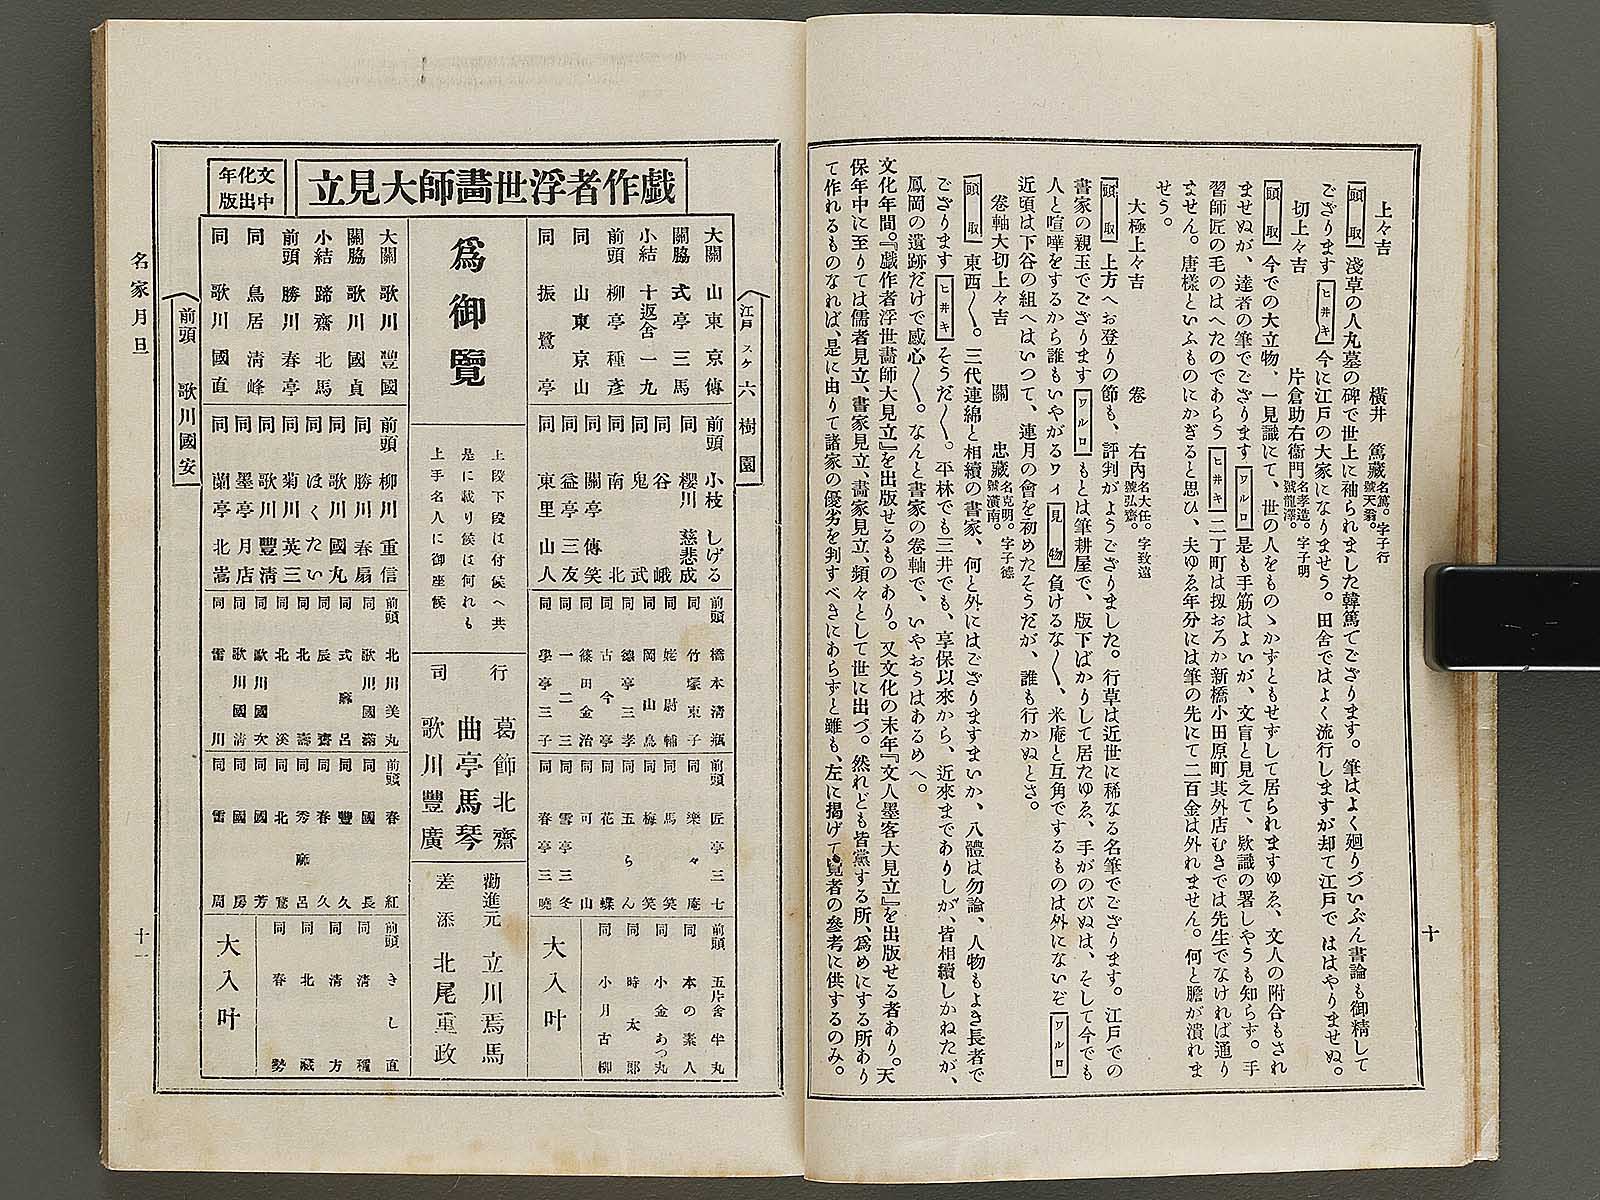 上々吉　横井　篤藏名篤。字子行號天翁。
頭取 淺草の人丸墓の碑で世上に袖られました韓篤でござります。筆はよく廻りづいぶん書論も御精して
ござります ヒ井キ 今に江戸の大家になりませう。田舍ではよく流行しますが却て江戸で ははやりませぬ。
切上々吉　片倉助右衞門名孝造。字子明號龍澤。
頭取 今での大立物、一見識にて、世の人をものゝかずともせずして居られますゆゑ、文人の附合もされ
ませぬが、達者の筆でござります ワルロ 是も手筋はよいが、文盲と見えて、欵識の署しやうも知らず。手
習師匠の毛のはへたのであらう ヒ井キ 二丁町は扨おろか新橋小田原町其外店むきでは先生でなければ通り
ません。唐樣といふものにかぎると思ひ、夫ゆゑ年分には筆の先にて二百金は外れません。何と膽が潰れま
せう。
大極上々吉　卷　右內名大任。字致遠號弘齋。
頭取 上方へお登りの節も、評判がようござりました。行草は近世に稀なる名筆でござります。江戸での
書家の親玉でござります ワルロ もとは筆耕屋で、版下ばかりして居たゆゑ、手がのびぬは、そして今でも
人と喧嘩をするから誰もいやがるワイ 見物 負けるな〱、米庵と互角でするものは外にないぞ ワルロ
近頃は下谷の組へはいつて、連月の會を初めたそうだが、誰も行かぬとさ。
卷軸大切上々吉　關　忠藏名克明。字子德號潢南。
頭取 東西〱。三代連綿と相續の書家、何と外にはござりますまいか、八體は勿論、人物もよき長者で
ござります ヒ井キ そうだ〱。平林でも三井でも、享保以來から、近來までありしが、皆相續しかねたが、
鳳岡の遺跡だけで感心〱。なんと書家の卷軸で、いやおうはあるめへ。
文化年間。『戲作者浮世畵師大見立』を出版せるものあり。又文化の末年『文人墨客大見立』を出版せる者あり。天
保年中に至りては儒者見立、書家見立、畵家見立、頻々として世に出づ。然れども皆黨する所、爲めにする所あり
て作れるものなれば、是に由りて諸家の優劣を判すべきにあらずと雖も、左に揭げて覽者の參考に供するのみ。
十
戲作者浮世畵師大見立
文化年中出版
江戸スケ 六樹園
大關 山東京傳
關脇 式亭三馬
小結 十返舍一九
前頭 柳亭種彥
同 山東京山
同 振鷺亭
前頭 小枝しげる
同 櫻川慈悲成
同 谷峨
同 鬼武
同 南北
同 關亭傳笑
同 益亭三友
同 東里山人
前頭 橋本淸瓶
同 竹塚東子
同 姥尉輔
同 岡山鳥
同 德亭三孝
同 古今亭
同 篠田金治
同 一二三
同 學亭三子
前頭 匠亭三七
同 樂々庵
同 馬笑
同 梅笑
同 五らん
同 花蝶
同 可山
同 雪亭三冬
同 春亭三曉
前頭 五片舍半丸
同 本の素人
同 小金あつ丸
同 時太郞
同 小月古柳
大入叶
爲御覽
上段下段は付候へ共
是に載り候は何れも
上手名人に御座候
行司
葛飾北齋
曲亭馬琴
歌川豐廣
勸進元 立川焉馬
差添 北尾重政
大關 歌川豐國
關脇 歌川國貞
小結 蹄齋北馬
前頭 勝川春亭
同 鳥居淸峰
同 歌川國直
前頭 柳川重信
同 勝川春扇
同 歌川國丸
同 ほくたい
同 菊川英三
同 歌川豐淸
同 墨亭月店
同 蘭亭北嵩
前頭 北川美丸
同 歌川國滿
同 式麻呂
同 辰齋
同 北壽
同 北溪
同 歌川國次
同 歌川國淸
同 雷川
前頭 春紅
同 國長
同 豐久
同 春久
同 秀麿呂
同 北鵞
同 國芳
同 國房
同 雷周
前頭 きし直
同 淸種
同 淸方
同 北藏
同 春勢
大入叶
前頭 歌川國安
名家月旦
十一